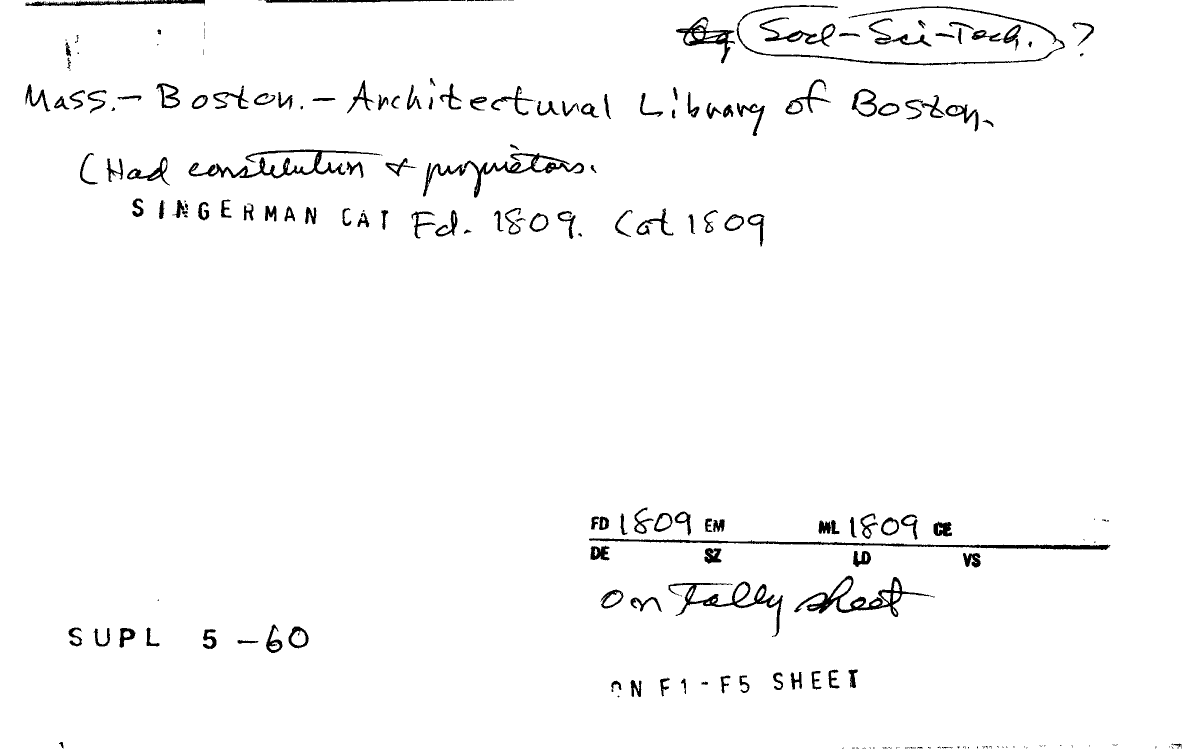 Socl-Sci-Tech. ?
Mass.- Boston. - Architectural Library of Boston.
(Had constitution & proprietors.
SINGERMAN CAT Fd. 1809. Cat 1809
FD 1809 EM ML 1809 CE
DE SZ LD VS
on Tally sheet
SUPL 5 -60
ON F1-F5 SHEET